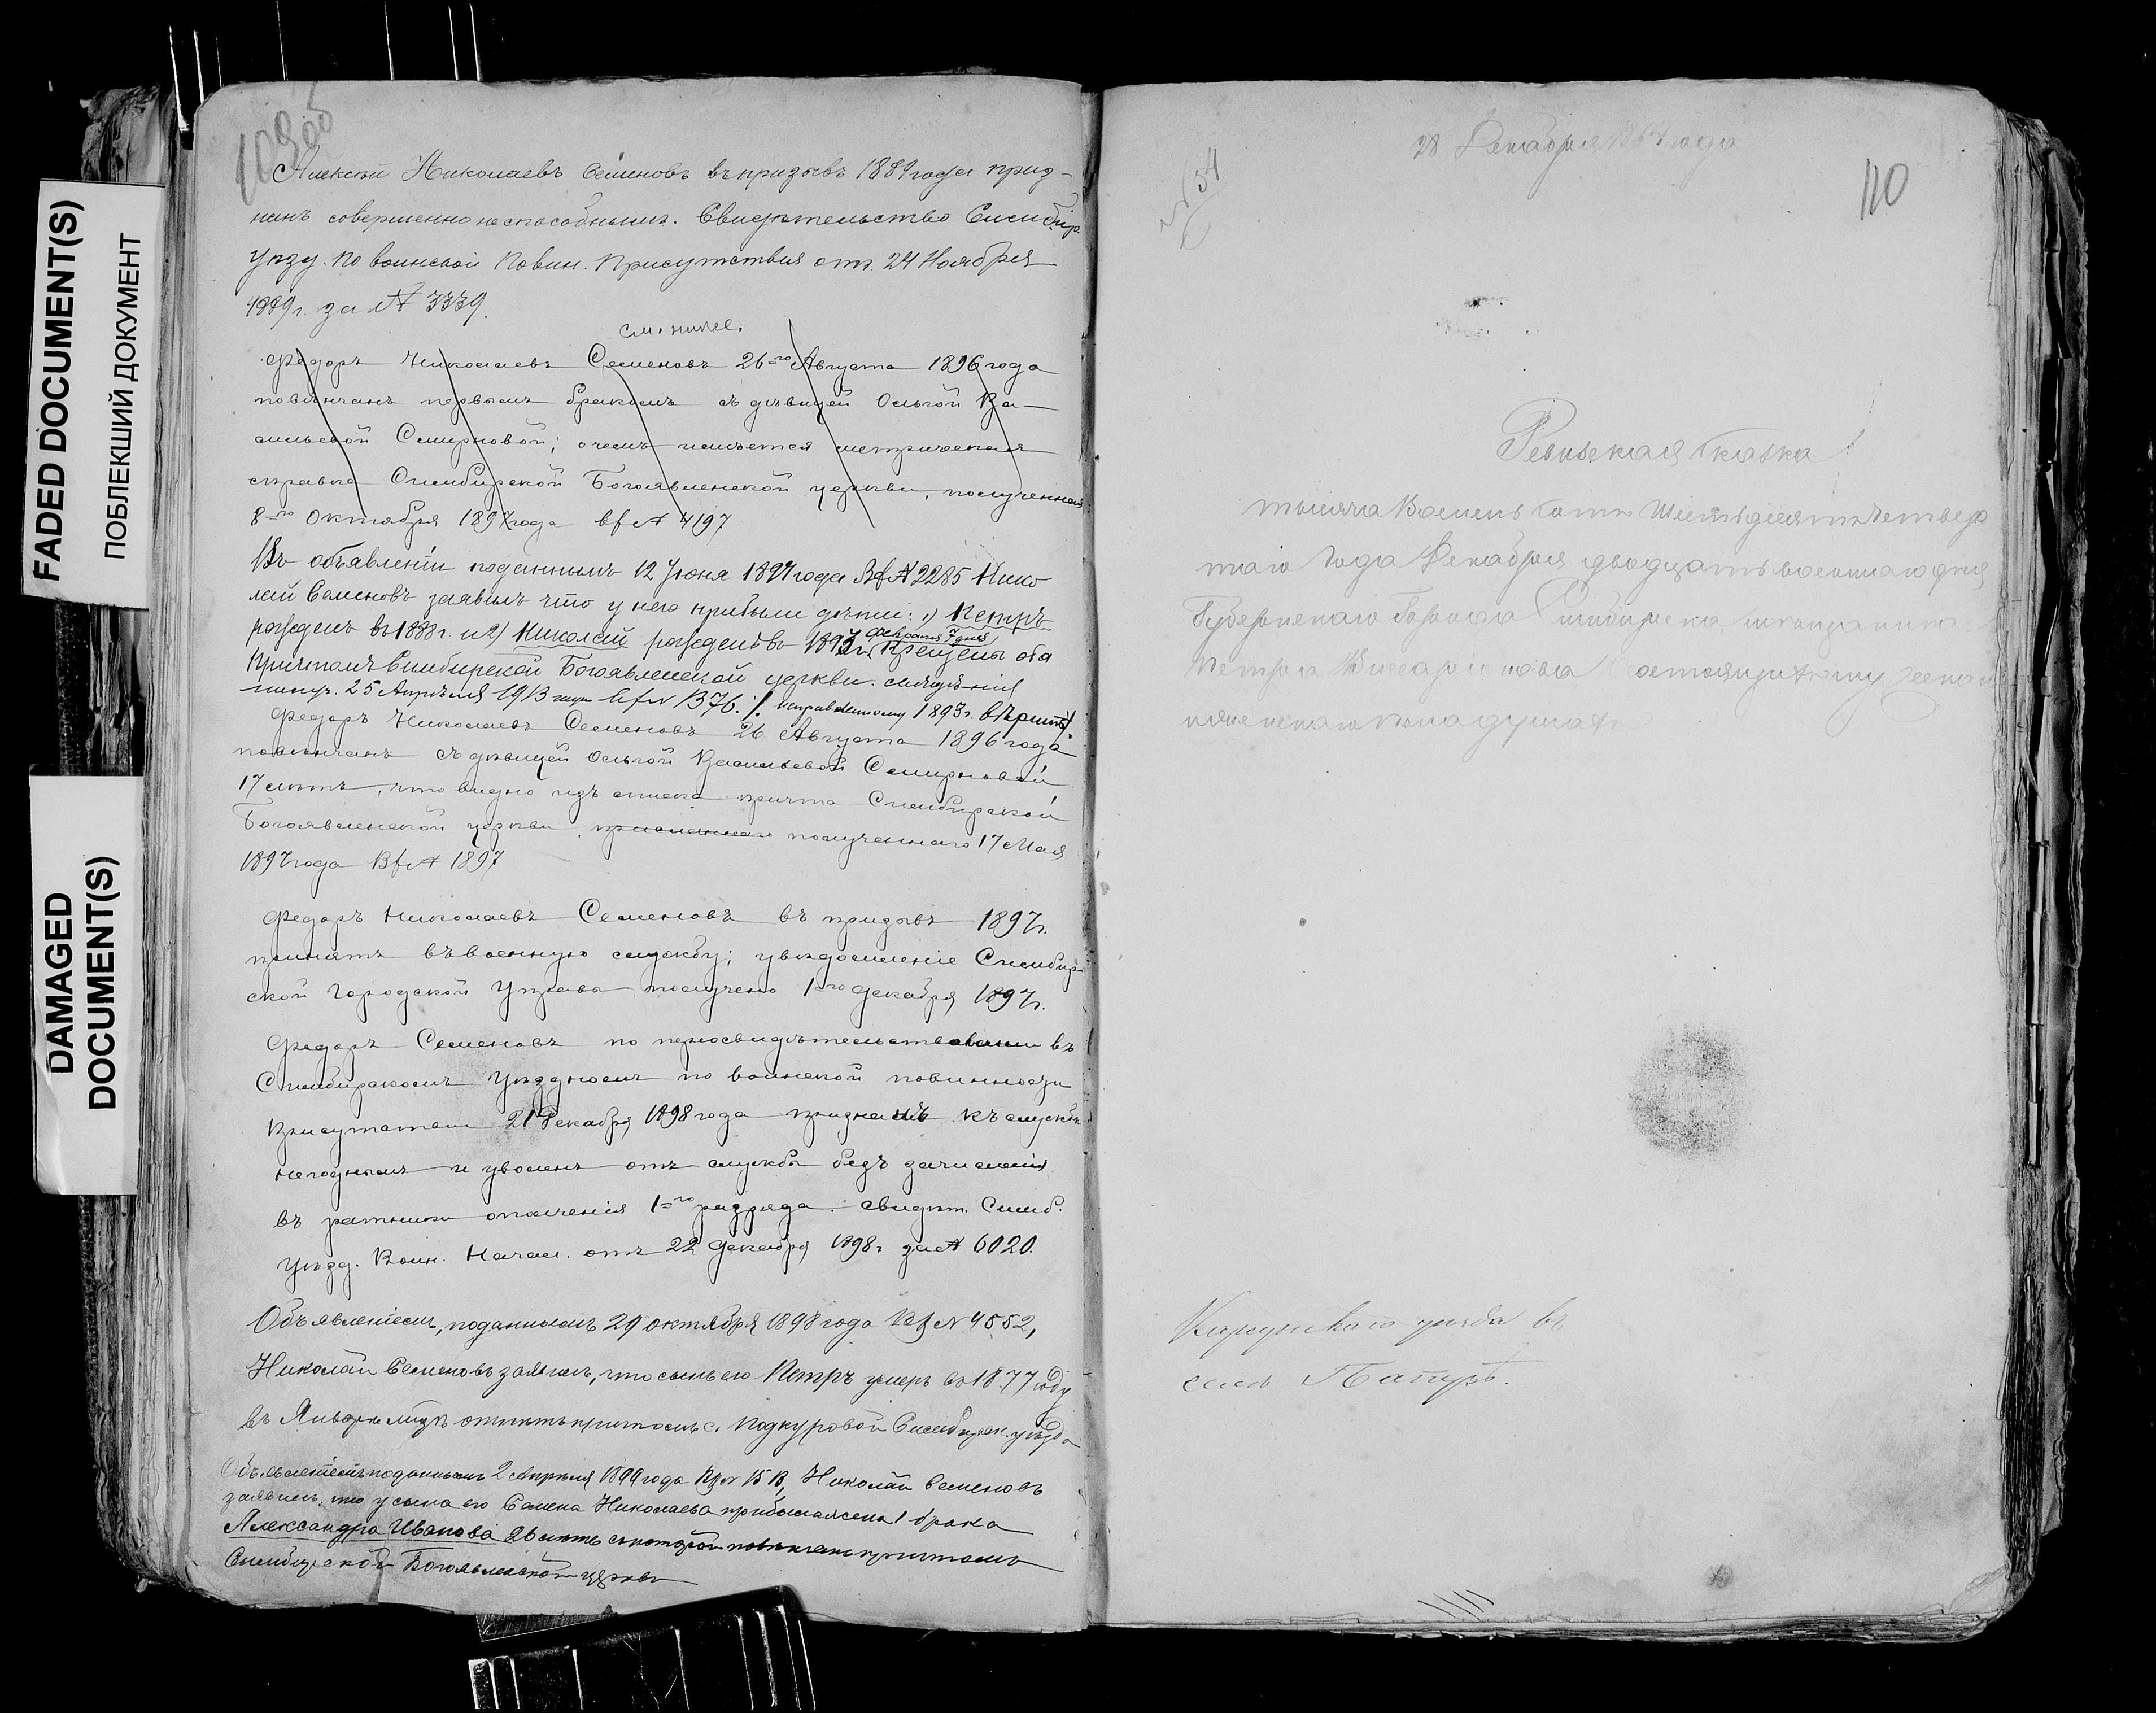 FADED DOCUMENT(S)
ПОБЛЕКШИЙ ДОКУМЕНТ
DAMAGED
DOCUMENT(S)
109 об
Алексѣй Николаевъ Семеновъ въ призывъ 1889 года приз-
нанъ совершенно неспособнымъ. Свидѣтельство Симбир.
Уѣзд. по воинской повин. Присутствія отъ 24 Ноября
1889 г. за № 3339.
см. ниже.
Федоръ Николаевъ Семеновъ 26го Августа 1896 года
повѣнчанъ первымъ бракомъ съ дѣвицей Ольгой Ва-
сильевой Смирновой; о чемъ имѣется метрическая
справка Симбирской Богоявленской церкви, полученная
8го Октября 1897 года № 4197
Въ объявленіи поданнымъ 12 Іюня 1897 года № 2285 Нико
лай Семеновъ заявилъ что у него прибыли дѣти: 1) Петръ
рожденъ въ 1888 г. и 2) Николай рожденъ въ 1893 г. февраля 7 дня, Крещены оба
Причтомъ Симбирской Богоявленской церкви. свѣдѣнія
25 Апрѣля 1913 года № 1376. исправленному 1893 г. вѣрить
Федоръ Николаевъ Семеновъ 26 Августа 1896 года
повѣнчанъ съ дѣвицей Ольгой Васильевой Смирновой
17 лѣтъ, что видно изъ списка причта Симбирской
Богоявленской церкви, полученнаго 17 Мая
1897 года № 1897
Федоръ Николаевъ Семеновъ въ призывъ 1897 г.
принятъ въ военную службу; увѣдомленіе Симбир-
ской Городской Управы получено 1го Декабря 1897 г.
Федоръ Семеновъ по переосвидѣтельствованіи въ
Симбирскомъ Уѣздномъ по воинской повинности
Присутствіи 21 Декабря 1898 года признанъ къ службѣ
негоднымъ и уволенъ отъ службы безъ зачисленія
въ ратники ополченія 1го разряда. свидѣт. Симб.
Уѣзд. Воин. Начал. отъ 22 Декабря 1898 г. за № 6020.
Объявленіемъ, поданнымъ 29 октября 1898 года № 4552,
Николай Семеновъ заявилъ, что сынъ его Петръ умеръ въ 1877 году
въ Январѣ мцѣ отпѣтъ причтомъ с. Подкуровой Симбирск. уѣзда
Объявленіемъ поданнымъ 2 Апрѣля 1899 года № 1518, Николай Семеновъ
заявилъ, что у сына его Семена Николаева прибыла жена 1 брака
Александра Иванова 26 лѣтъ съ которой повѣнчанъ причтомъ
Симбирской Богоявленской церкви
№ 54
28 Декабря года
110
Ревизская сказка
тысяча Восемь сотъ Шестьдесятъ Четвер
таго Года Декабря двадцать восьмаго дня
Губернскаго Города Симбирска
Петра
Карсунскаго уѣзда въ
селѣ